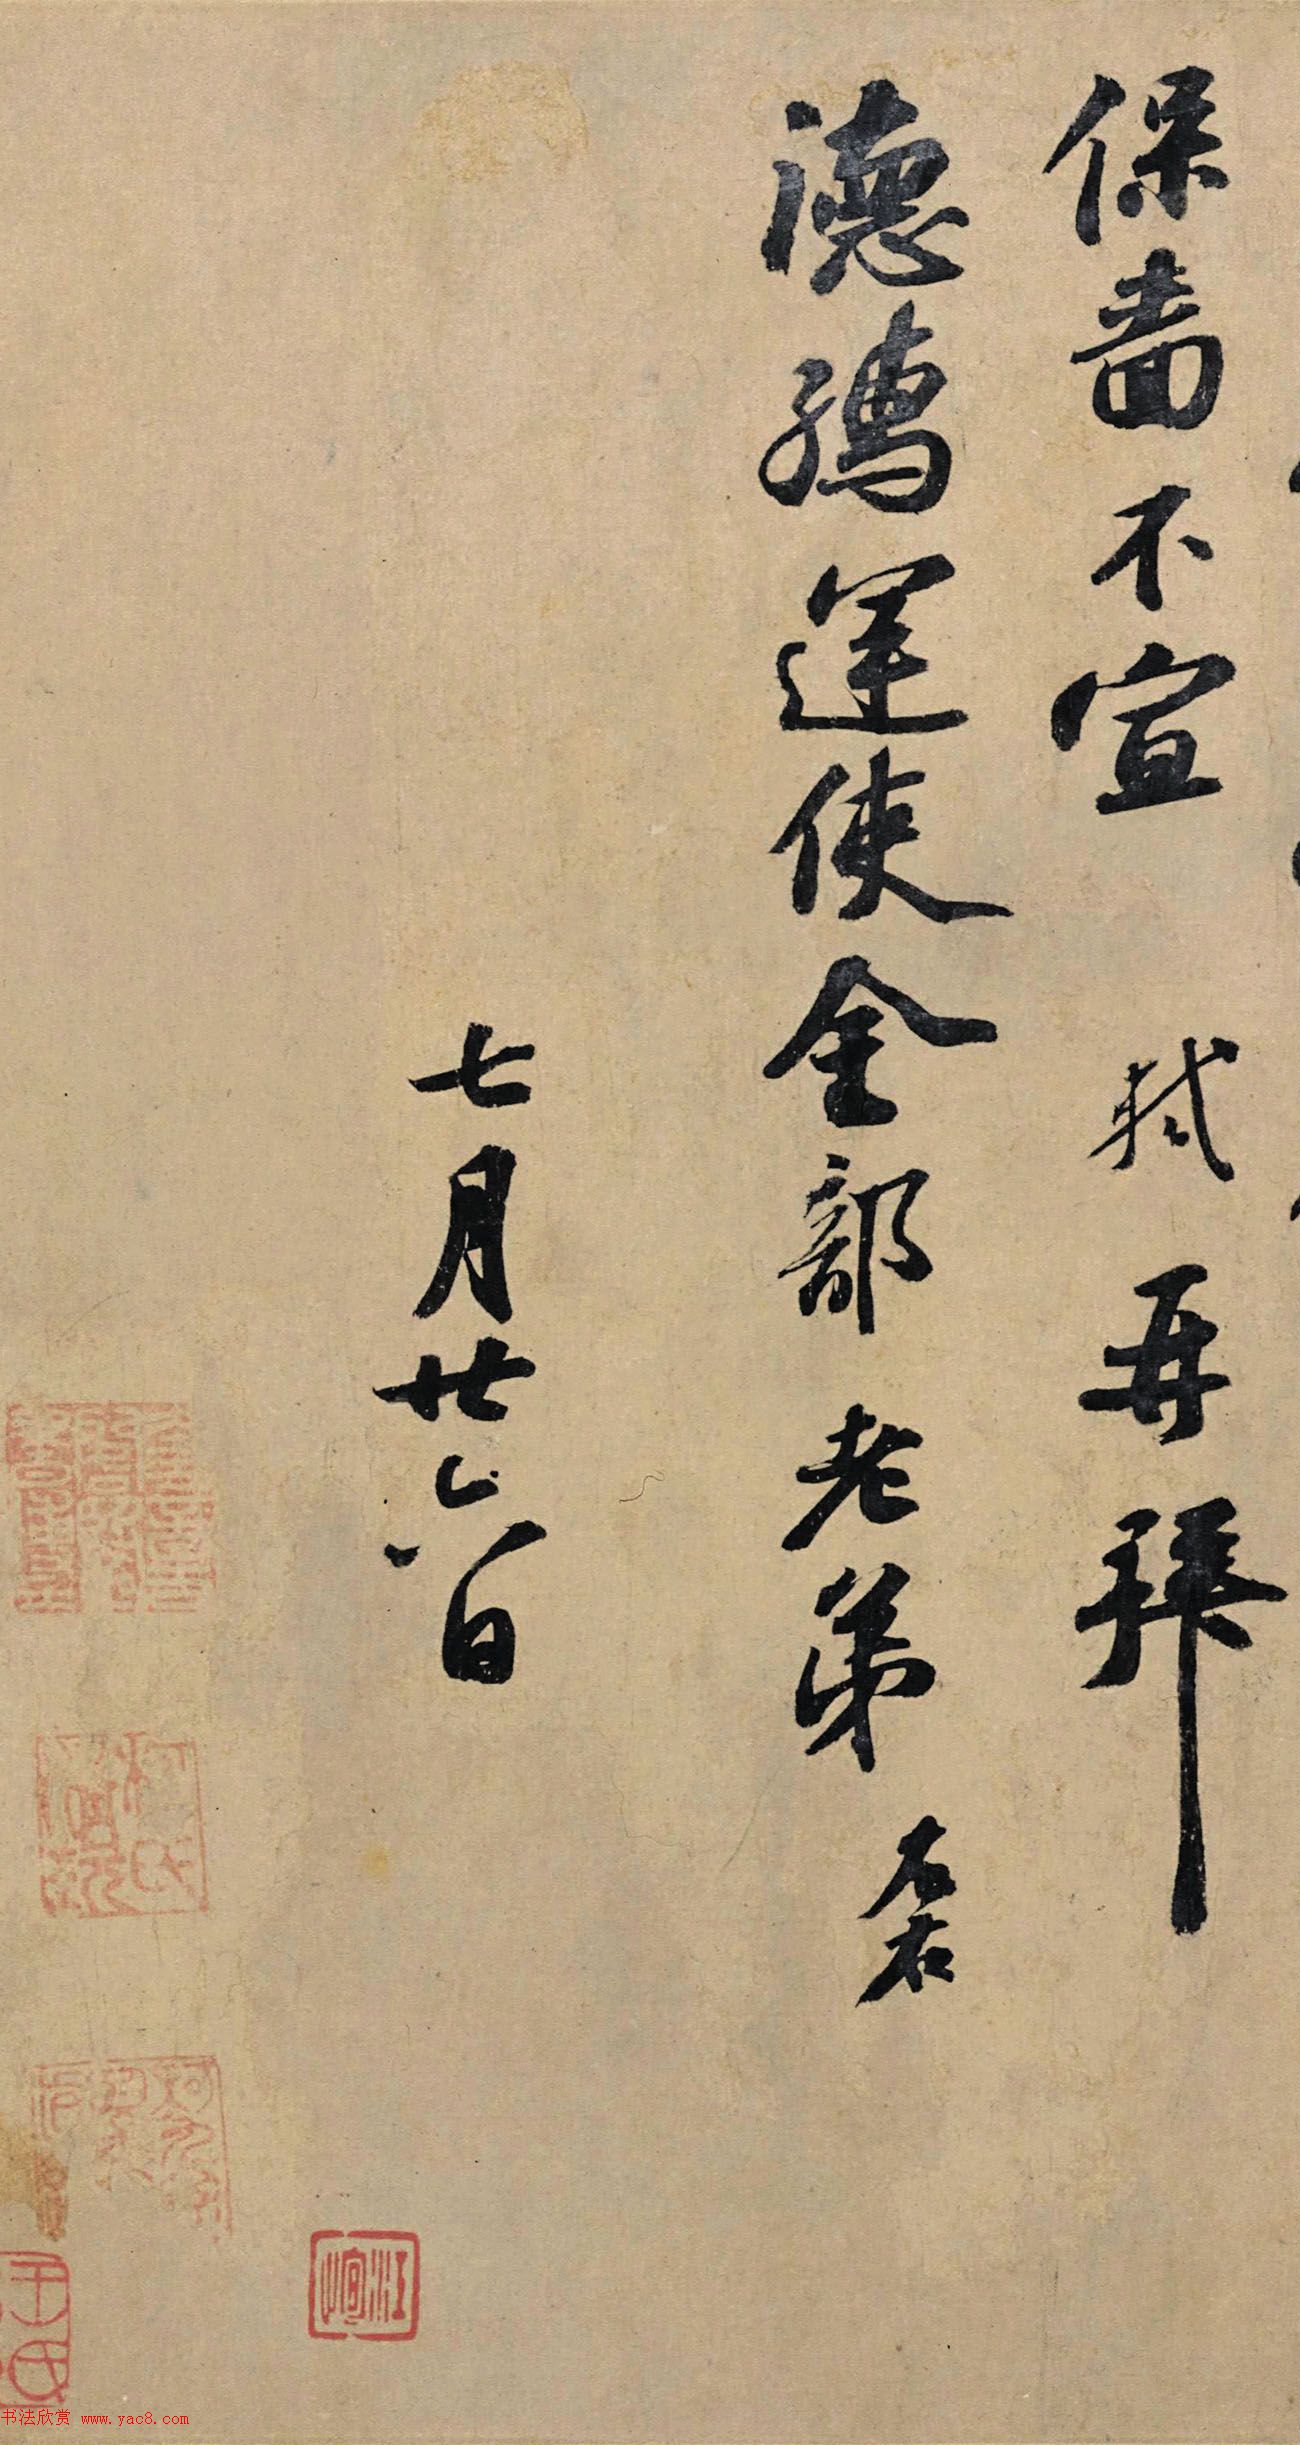 保啬不宣 轼再拜
德孺运使金部老弟 左右
七月廿六日
书法欣赏 www.yac8.com